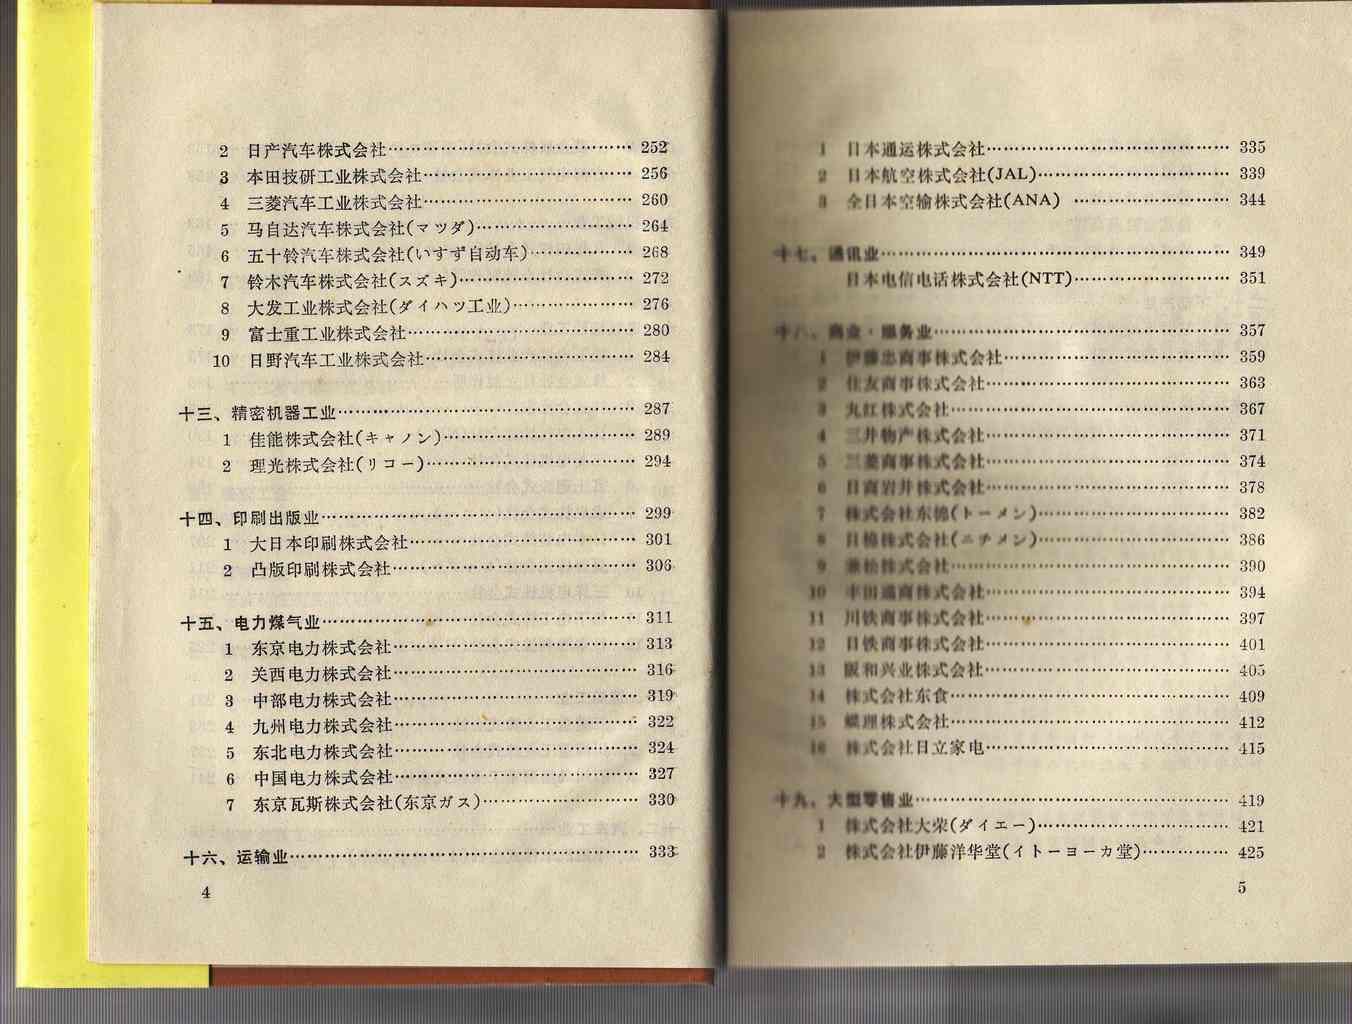 2 日产汽车株式会社…………………………………… 252
3 本田技研工业株式会社……………………………… 256
4 三菱汽车工业株式会社……………………………… 260
5 马自达汽车株式会社(マツダ)……………………… 264
6 五十铃汽车株式会社(いすず自动车)……………… 268
7 铃木汽车株式会社(スズキ)………………………… 272
8 大发工业株式会社(ダイハツ工业)………………… 276
9 富士重工业株式会社………………………………… 280
10 日野汽车工业株式会社……………………………… 284
十三、精密机器工业…………………………………………… 287
1 佳能株式会社(キャノン)…………………………… 289
2 理光株式会社(リコー)……………………………… 294
十四、印刷出版业……………………………………………… 299
1 大日本印刷株式会社………………………………… 301
2 凸版印刷株式会社…………………………………… 306
十五、电力煤气业……………………………………………… 311
1 东京电力株式会社…………………………………… 313
2 关西电力株式会社…………………………………… 316
3 中部电力株式会社…………………………………… 319
4 九州电力株式会社…………………………………… 322
5 东北电力株式会社…………………………………… 324
6 中国电力株式会社…………………………………… 327
7 东京瓦斯株式会社(东京ガス)……………………… 330
十六、运输业…………………………………………………… 333
4
1 日本通运株式会社…………………………………… 335
2 日本航空株式会社(JAL)…………………………… 339
3 全日本空输株式会社(ANA) ……………………… 344
十七、通讯业…………………………………………………… 349
日本电信电话株式会社(NTT)……………………… 351
十八、商业·服务业…………………………………………… 357
1 伊藤忠商事株式会社………………………………… 359
2 住友商事株式会社…………………………………… 363
3 丸红株式会社………………………………………… 367
4 三井物产株式会社…………………………………… 371
5 三菱商事株式会社…………………………………… 374
6 日商岩井株式会社…………………………………… 378
7 株式会社东棉(トーメン)…………………………… 382
8 日棉株式会社(ニチメン)…………………………… 386
9 兼松株式会社………………………………………… 390
10 丰田通商株式会社…………………………………… 394
11 川铁商事株式会社…………………………………… 397
12 日铁商事株式会社…………………………………… 401
13 阪和兴业株式会社…………………………………… 405
14 株式会社东食………………………………………… 409
15 蝶理株式会社………………………………………… 412
16 株式会社日立家电…………………………………… 415
十九、大型零售业……………………………………………… 419
1 株式会社大荣(ダイエー)…………………………… 421
2 株式会社伊藤洋华堂(イトーヨーカ堂)…………… 425
5